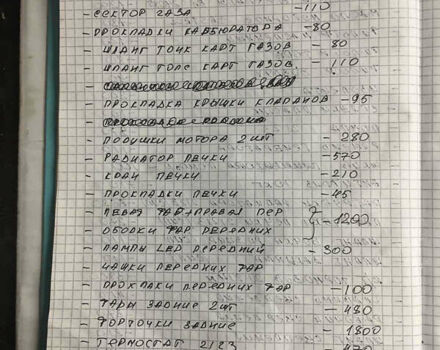 - СЕКТОР ГАЗА -110
- ПРОКЛАДКИ КАРБЮРАТОРА -80
- ШЛАНГ ТОНК КАРТ ГАЗОВ - 80
- ШЛАНГ ТОЛС КАРТ ГАЗОВ - 110
- ПРОКЛАДКА КРЫШКИ КЛАПАНОВ -95
- ПОДУШКИ МОТОРА 2ШТ -280
- РАДИАТОР ПЕЧКИ -570
- КРАН ПЕЧКИ -210
- ПРОКЛАДКИ ПЕЧКИ -45
- ЛЕВАЯ ФАР+ПРАВАЯ ПЕР
- ОБОДКИ ФАР ПЕРЕДНИХ -1200
- ЛАМПЫ LED ПЕРЕДНИЙ - 300
- ЧАШКИ ПЕРЕДНИХ ФАР
- ПЕРЕДНИХ ФАР -100
- ФАРЫ ЗАДНИЕ 2ШТ -480
- ФОРТОЧКИ ЗАДНИЕ -1800
- ТЕРМОСТАТ 2123